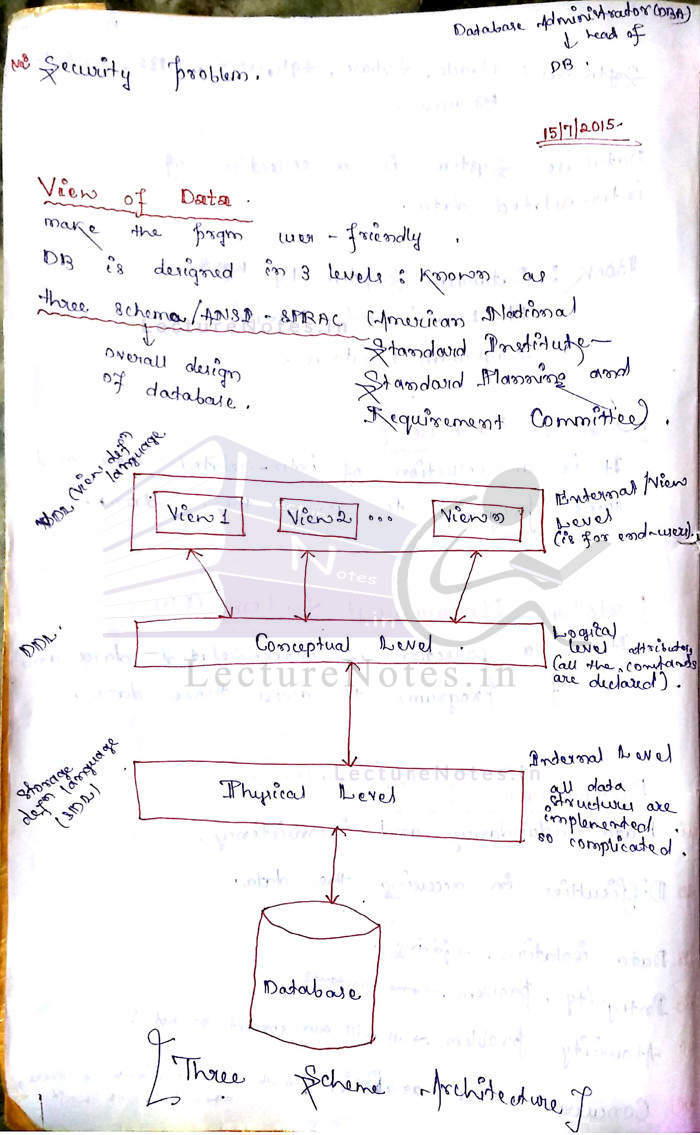 Database Administrator (DBA)
↓ head of
DB.
Security problem.
15/7/2015
View of Data.
make the prgm user-friendly.
DB is designed in 3 levels: known as
three schema/ANSI-SPRAC (American National
Standard Institute-
Standard Planning and
Requirement Committee).
overall design
of database.
VDL (View defn
language
View 1
View 2 ...
View n
External/View
Level
(is for end-user).
DDL.
Conceptual Level.
Logical
Level attributes,
(all the constants
are declared).
LectureNotes.in
LectureNotes.in
LectureNotes.in
Notes
.in
Storage
defn language
(SDL)
Physical Level
Internal Level
all data
structures are
implemented
so complicated.
Database
[Three Scheme Architecture]